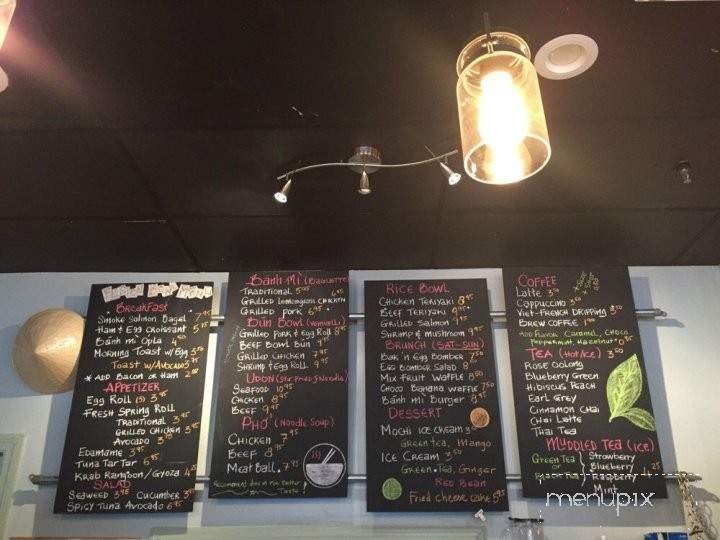 BreakFast
Smoke Salmon Bagel 7.95
Ham & Egg Croissant 5.95
Bánh mì Opla 4.50
Morning Toast w/Egg 3.50
Toast w/Avocado
* Add Bacon or Ham
APPETIZER
Egg Roll (5) 3.95
Fresh Spring Roll
Traditional 3.95
Grilled Chicken
Avocado
Edamame 3.95
Tuna Tar Tar 6.95
Krab Rangoon/Gyoza
SALAD
Seaweed 3.95 Cucumber
Spicy Tuna Avocado 6.95
Bánh Mì (Baguette)
Traditional 5.95
Grilled lemongrass chicken
Grilled pork 6.95
Bún Bowl (Vermicelli)
Grilled Pork & Egg Roll 8.95
Beef Bowl Bún
Grilled Chicken 7.95
Shrimp & Egg Roll 9.95
Udon (Stir Fried/Noodle)
Seafood 10.95
Chicken 8.95
Beef 9.95
Phở (Noodle Soup)
Chicken 7.95
Beef 8.95
Meat Ball 7.95
Taste
Rice Bowl
Chicken Teriyaki 8.95
Beef Teriyaki 9.95
Grilled Salmon
Shrimp & mushroom 9.95
Brunch (Sat-Sun)
Bak'n Egg Bomber 7.50
Egg Bomber Salad 8
Mix Fruit Waffle 8.50
Choco Banana Waffle 7.50
Bánh mì Burger 8.95
Dessert
Mochi Ice cream 3
Green tea, Mango
Ice Cream 3.50
Green Tea, Ginger
Red Bean
Fried cheese cake 5.95
Coffee
Latte 3.50
Cappuccino 3.50
Viet-French Dripping 3.50
Brew Coffee
Add Flavor Caramel, Choco
Peppermint, Hazelnut
Tea (Hot/Ice) 3.50
Rose Oolong
Blueberry Green
Hibiscus Peach
Earl Grey
Cinnamon Chai
Chai Latte
Thai Tea
Muddled Tea (Ice)
Green Tea Strawberry
or Blueberry
Raspberry
Mint
menupix